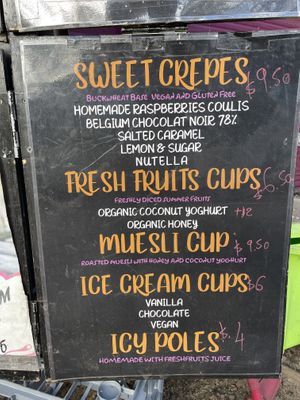 SWEET CREPES $9.50
BUCKWHEAT BASE VEGAN AND GLUTEN FREE
HOMEMADE RASPBERRIES COULIS
BELGIUM CHOCOLAT NOIR 78%
SALTED CARAMEL
LEMON & SUGAR
NUTELLA
FRESH FRUITS CUPS $6.50
FRESHLY DICED SUMMER FRUITS
ORGANIC COCONUT YOGHURT
ORGANIC HONEY
MUESLI CUP $9.50
ROASTED MUESLI WITH HONEY AND COCONUT YOGHURT
ICE CREAM CUPS $6
VANILLA
CHOCOLATE
VEGAN
ICY POLES $.4
HOMEMADE WITH FRESH FRUITS JUICE